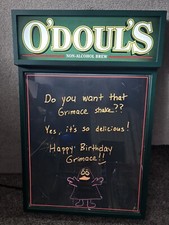 O'DOUL'S
NON-ALCOHOL BREW
Do you want that
Grimace shake??
Yes, it's so delicious!
Happy Birthday
Grimace!!